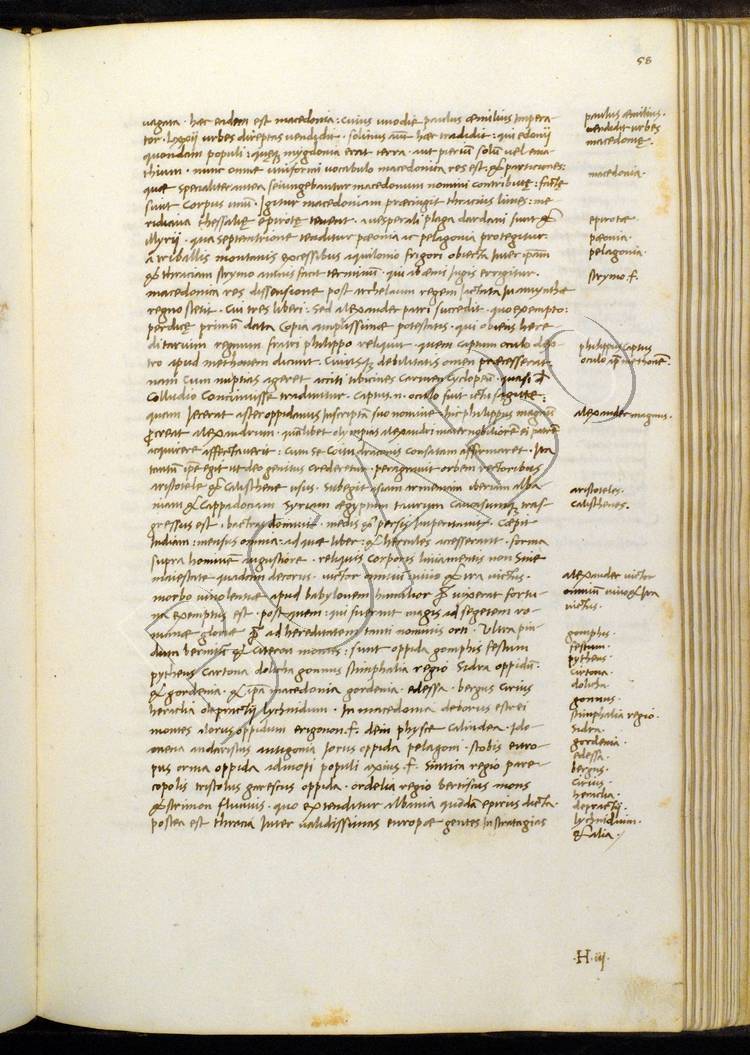 58
uagata · hæc eadem est macedonia : cuius uno die paulus æmilius impera-
tor · lxxii urbes direptas uendidit · solinus aūt hæc tradidit : qui edonii
quondam populi : quęq; mygdonia erat terra · aut pierium solū uel ema-
thium · nunc omne uniformi uocabulo macedonica res est : & particiones :
quæ specialiter antea seiungebantur macedonum nomini contributę : factę
sunt corpus unū · Igitur macedoniam præcingit thracius limes : me-
ridiana thessalię epirotę tenent · a uesperali plaga dardani sunt &
illyrii · qua septentrione tenditur pæonia ac pelagonia protegitur
a triballis montanis excessibus aquilonio frigori obiecta Inter ipsam
& thraciam strymo amnis facit terminū · qui ab æmi iugis errigitur ·
macedonica res dissensione post archelaum regem iactata In amynthæ
regno stetit · Cui tres liberi : sed alexander patri succedit · quo exempto :
perdicę primum data copia amplissimæ potestatis · qui obiens here-
ditarium regnum fratri philippo reliquit · quem captum oculo dex-
tro apud methonem dicunt · Cuiusq; debilitatis omen præcesserat ·
nam cum nuptias ageret acciti tibicines carmen cyclopeū · quasi
colludio concinuisse traduntur · captus · n · oculo fuit ictu sagittę :
quam iecerat aster oppidanus Inscripta suo nomine hic philippus magnū
procreat alexandrum · quālibet olympias alexandri mater nobiliorem ei patrem
acquirere affectauerit : cum se coitu draconis consatam affirmaret · Ita
tantū ipse egit ut deo genitus crederetur · peragrauit orbem rectoribus
aristotele & calisthene usus · subegit asiam armeniam iberiam alba-
niam & cappadociam syriam ægyptum taurum caucasumq; tras-
gressus est · bactra domuit · medis & persis Imperitauit · cæpit
Indiam : mensus omnia : ad quæ liber : & hercules accesserant · forma
supra hominem augustiore · reliquis corporis liniamentis non sine
maiestate quadam decorus · uictor omniū uino & ira uictus ·
morbo uinolentiæ apud babylonem humilior & uixerat fortu-
na exemptus est · post quem : qui fuerunt magis ad segetem ro-
manæ gloriæ & ad hereditatem tanti nominis orti · Ultra pin-
dum & citeron montes : sunt oppida gomphis festum
pytheus cartona dolicha gonnus stimphalia regio sidra oppidū :
& gordenia · & ipa macedonia gordenia · edessa · bergus cirius
heraclia depractii lychnidum · In macedonia
montes alorus oppidum erigonon · f · dein physcæ calindea · Ido-
mena andaristus antigonia iorus oppida pelagoni · stobis euro-
pus orma oppida admopi populi axius · f · sintica regio pare-
copolis tristolus garescus oppida · ordelia regio bertiscus mons
& strimon fluuius · quo extenditur albania quōdā epirus dicta ·
postea est thracia Inter ualidissimas europæ gentes In strategias
paulus æmilius ·
uendidit urbes
macedonię ·
macedonia ·
epirotæ ·
pæonia ·
pelagonia ·
strymo · f ·
philippus captus
oculo ap̄ methonem ·
alexander magnus ·
aristoteles ·
calisthenes ·
alexander uictor
omniū uino & ira
uictus ·
gomphis ·
festum ·
pytheus ·
cirtona ·
dolicha ·
gonnus ·
stimphalia regio ·
sidra ·
gordenia ·
edessa ·
bergus ·
cirius ·
heraclia ·
depractii ·
lychnidum ·
& alia ·
· H · iij ·